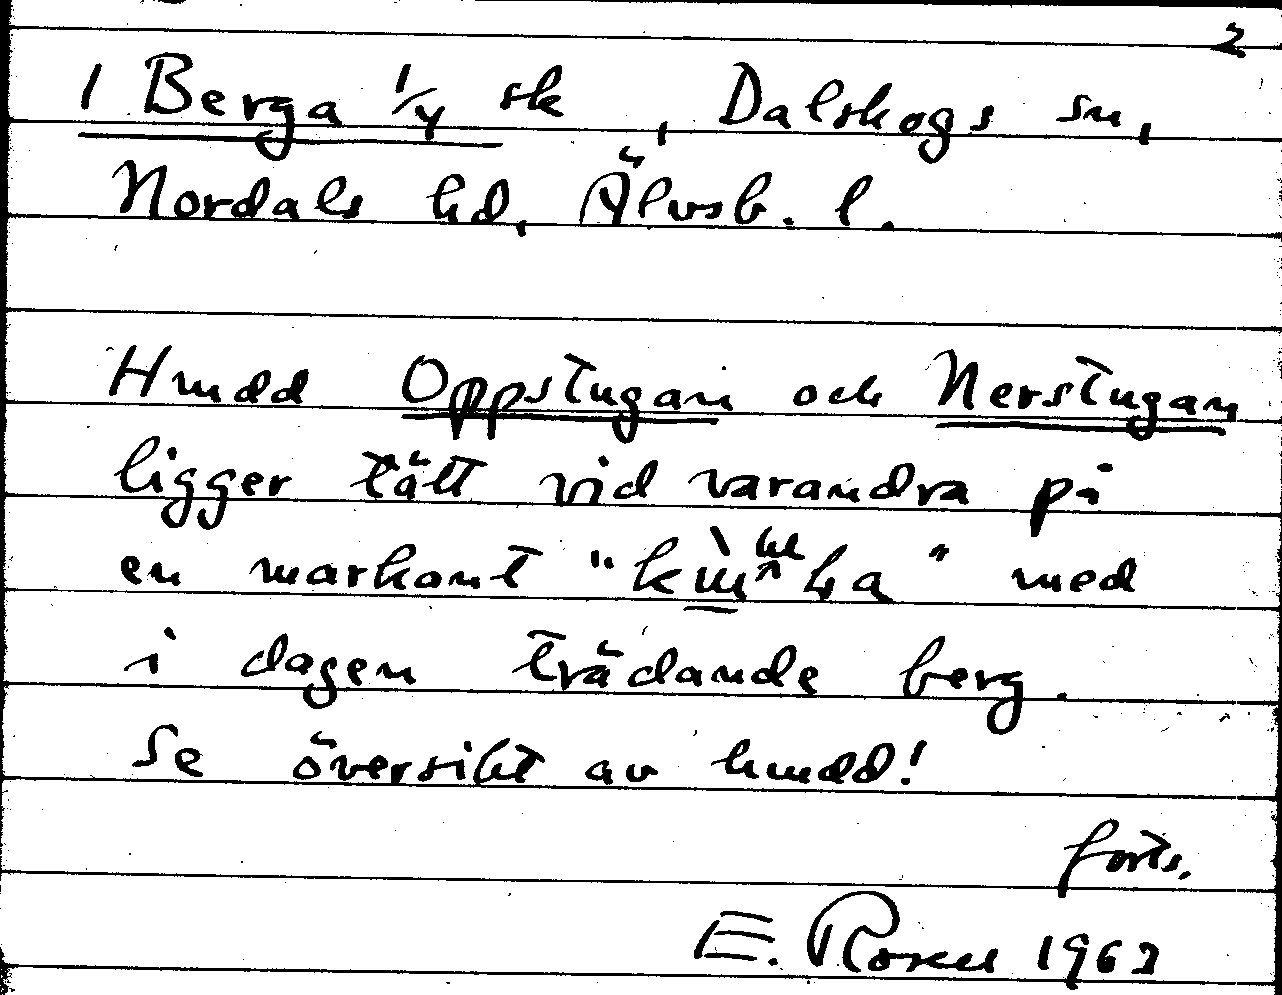 2
1 Berga 1/4 sk, Dalskogs sn,
Nordals hd, Älvsb. l.
Hmdd Oppstugan och Nerstugan
ligger tätt vid varandra på
en markant " med
i dagen trädande berg.
Se översikt av hmdd!
forts.
E. Rosell 1963